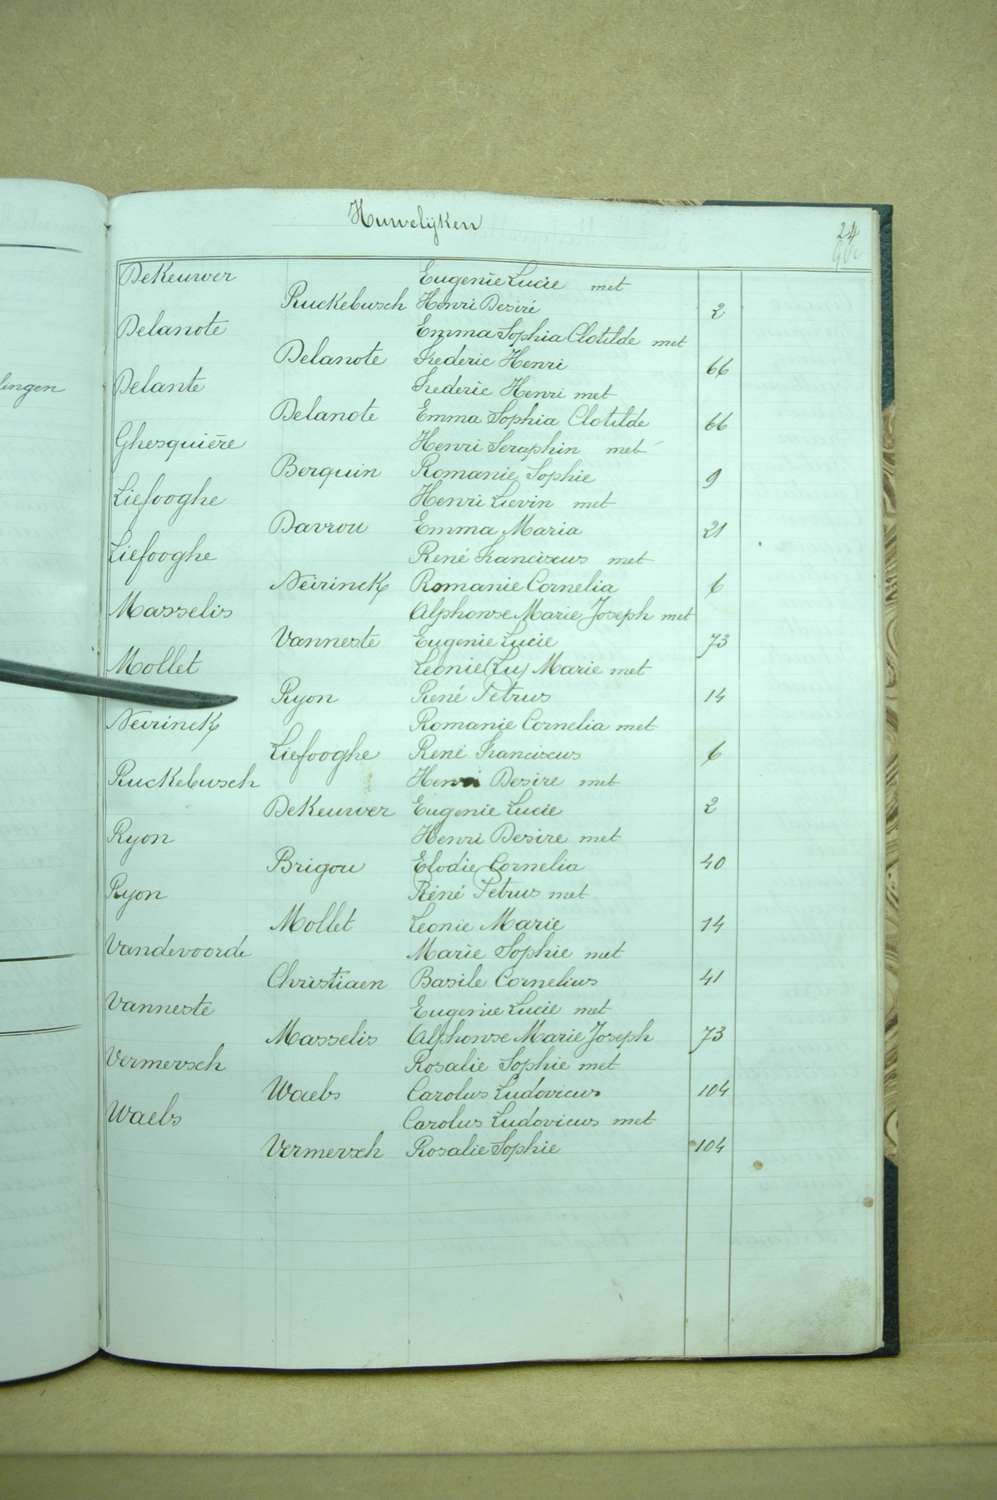 Huwelijken
24
lingen
DeKeuwer Eugenie Lucie met
Ruckebusch Henri Desiré 2
Delanote Emma Sophia Clotilde met
Delanote Frederic Henri 66
Delante Frederic Henri met
Delanote Emma Sophia Clotilde 66
Ghesquière Henri Seraphin met
Berquin Romanie Sophie 9
Liefooghe Henri Lievin met
Davrou Emma Maria 21
Liefooghe René Franciscus met
Neirinck Romanie Cornelia 6
Masselis Alphonse Marie Joseph met
Vanneste Eugenie Lucie 73
Mollet Leonie (Lu) Marie met
Ryon René Petrus 14
Neirinck Romanie Cornelia met
Liefooghe René Franciscus 6
Ruckebusch Henri Desire met
DeKeuwer Eugenie Lucie 2
Ryon Henri Desire met
Brigou Elodie Cornelia 40
Ryon Réné Petrus met
Mollet Leonie Marie 14
Vandevoorde Marie Sophie met
Christiaen Basile Cornelius 41
Vanneste Eugenie Lucie met
Masselis Alphonse Marie Joseph 73
Vermersch Rosalie Sophie met
Waebs Carolus Ludovicus 104
Waebs Carolus Ludovicus met
Vermersch Rosalie Sophie 104